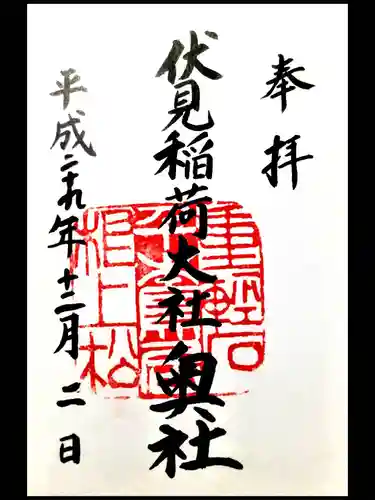 奉拝
伏見稲荷大社奥社
平成二十九年十二月二日